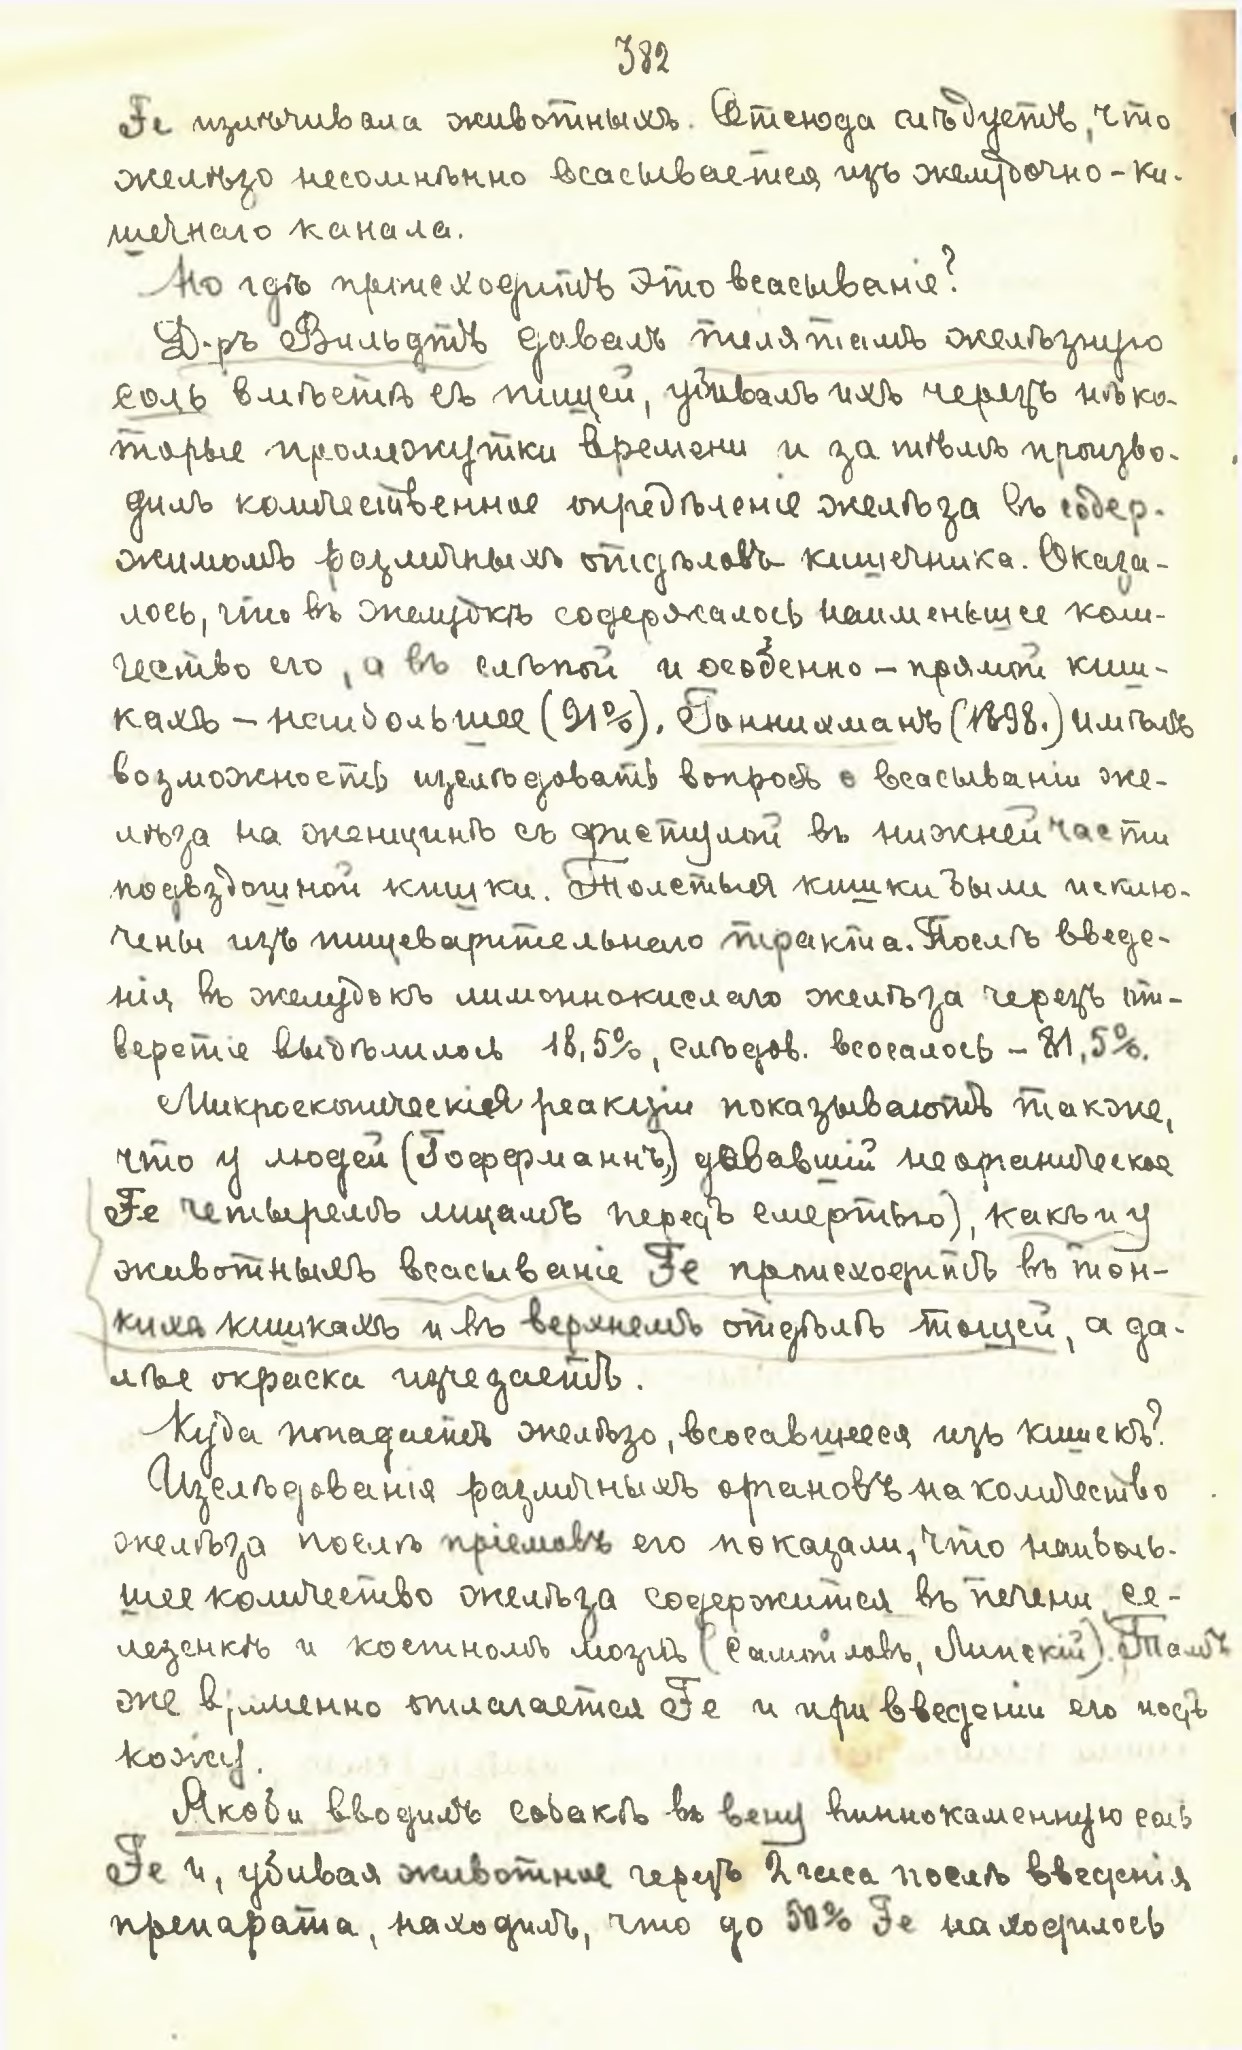 382
Fe излѣчивала животныхъ. Отсюда слѣдуетъ, что
желѣзо несомнѣнно всасывается изъ желудочно-ки-
шечнаго канала.
Но гдѣ происходитъ это всасываніе?
Д-ръ Вильдтъ давалъ телятамъ желѣзную
соль вмѣстѣ съ пищей, убивалъ ихъ черезъ нѣко-
торые промежутки времени и за тѣмъ произво-
дилъ количественное опредѣленіе желѣза въ содер-
жимомъ различныхъ отдѣловъ кишечника. Оказа-
лось, что въ желудкѣ содержалось наименьшее коли-
чество его, а въ слѣпой и особенно – прямой киш-
кахъ – наибольшее (91%). Гоннихманъ (1898.) имѣлъ
возможность изслѣдовать вопросъ о всасываніи же-
лѣза на женщинѣ съ фистулой въ нижней части
подвздошной кишки. Толстыя кишки были исклю-
чены изъ пищеварительнаго тракта. Послѣ введе-
нія въ желудокъ лимоннокислаго желѣза черезъ от-
верстіе выдѣлилось 18,5%, слѣдов. всосалось – 81,5%.
Микроскопическія реакціи показываютъ также,
что у людей (Гофферманнъ,) дававшій неорганическое
Fe четыремъ лицамъ передъ смертью), какъ и у
животныхъ всасываніе Fe происходитъ въ тон-
кихъ кишкахъ и въ верхнемъ отдѣлѣ тощей, а да-
лѣе окраска изчезаетъ.
Куда попадаетъ желѣзо, всосавшееся изъ кишекъ?
Изслѣдованія различныхъ органовъ на количество
желѣза послѣ пріемовъ его показали, что наиболь-
шее количество желѣза содержится въ печени, се-
лезенкѣ и костномъ мозгѣ (Самойловъ, Липскій). Тамъ
же временно отлагается Fe и при введеніи его подъ
кожу.
Якоби вводилъ собакѣ въ вену виннокаменную соль
Fe и, убивая животное черезъ 2 часа послѣ введенія
препарата, находилъ, что до 50% Fe находилось